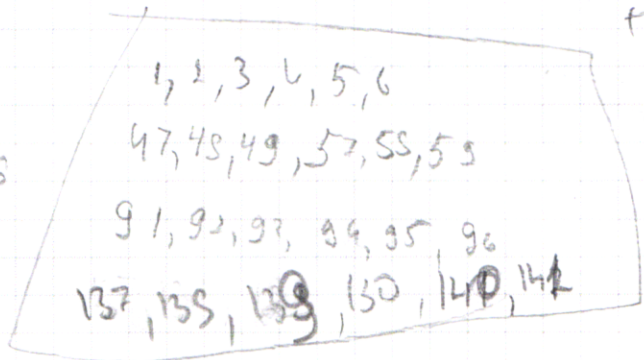 1, 2, 3, 4, 5, 6
47, 48, 49, 57, 58, 59
91, 92, 93, 94, 95, 96
137, 138, 139, 130, 140, 141